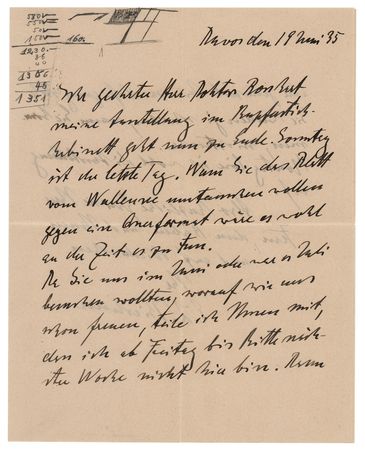 580.-
550.-
50.-
150.-
160.
1230.-
36
40
1306
45
1351
Davos den 19 Juni 35
Sehr geehrter Herr Doktor
meine Ausstellung im Kupferstich-
kabinett geht nun zu Ende Sonntag
ist der letzte Tag. Wenn Sie das Blatt
vom Wallensee umtauschen wollen
gegen ein Querformat wäre es wohl
an der Zeit es zu tun.
Da Sie uns im Juni oder war es Juli
besuchen wollten, worauf wir uns
schon freuen, teile ich Ihnen mit,
dass ich ab Freitag bis Mitte näch-
ster Woche nicht hier bin. Denn